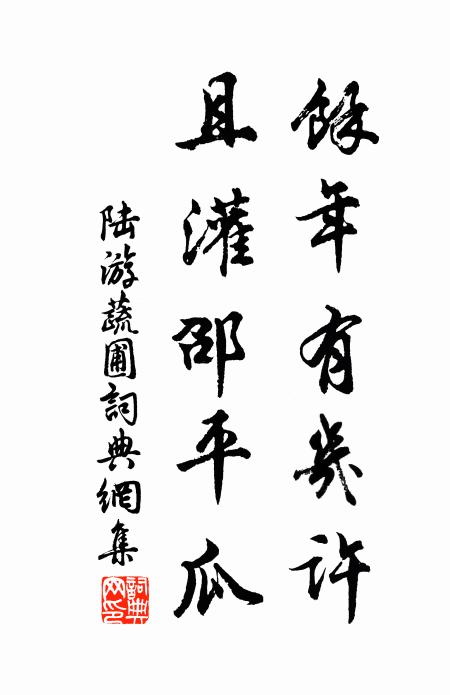 餘年有幾許
且灌邵平瓜
陆游蔬圃詞典網集
詞典網印